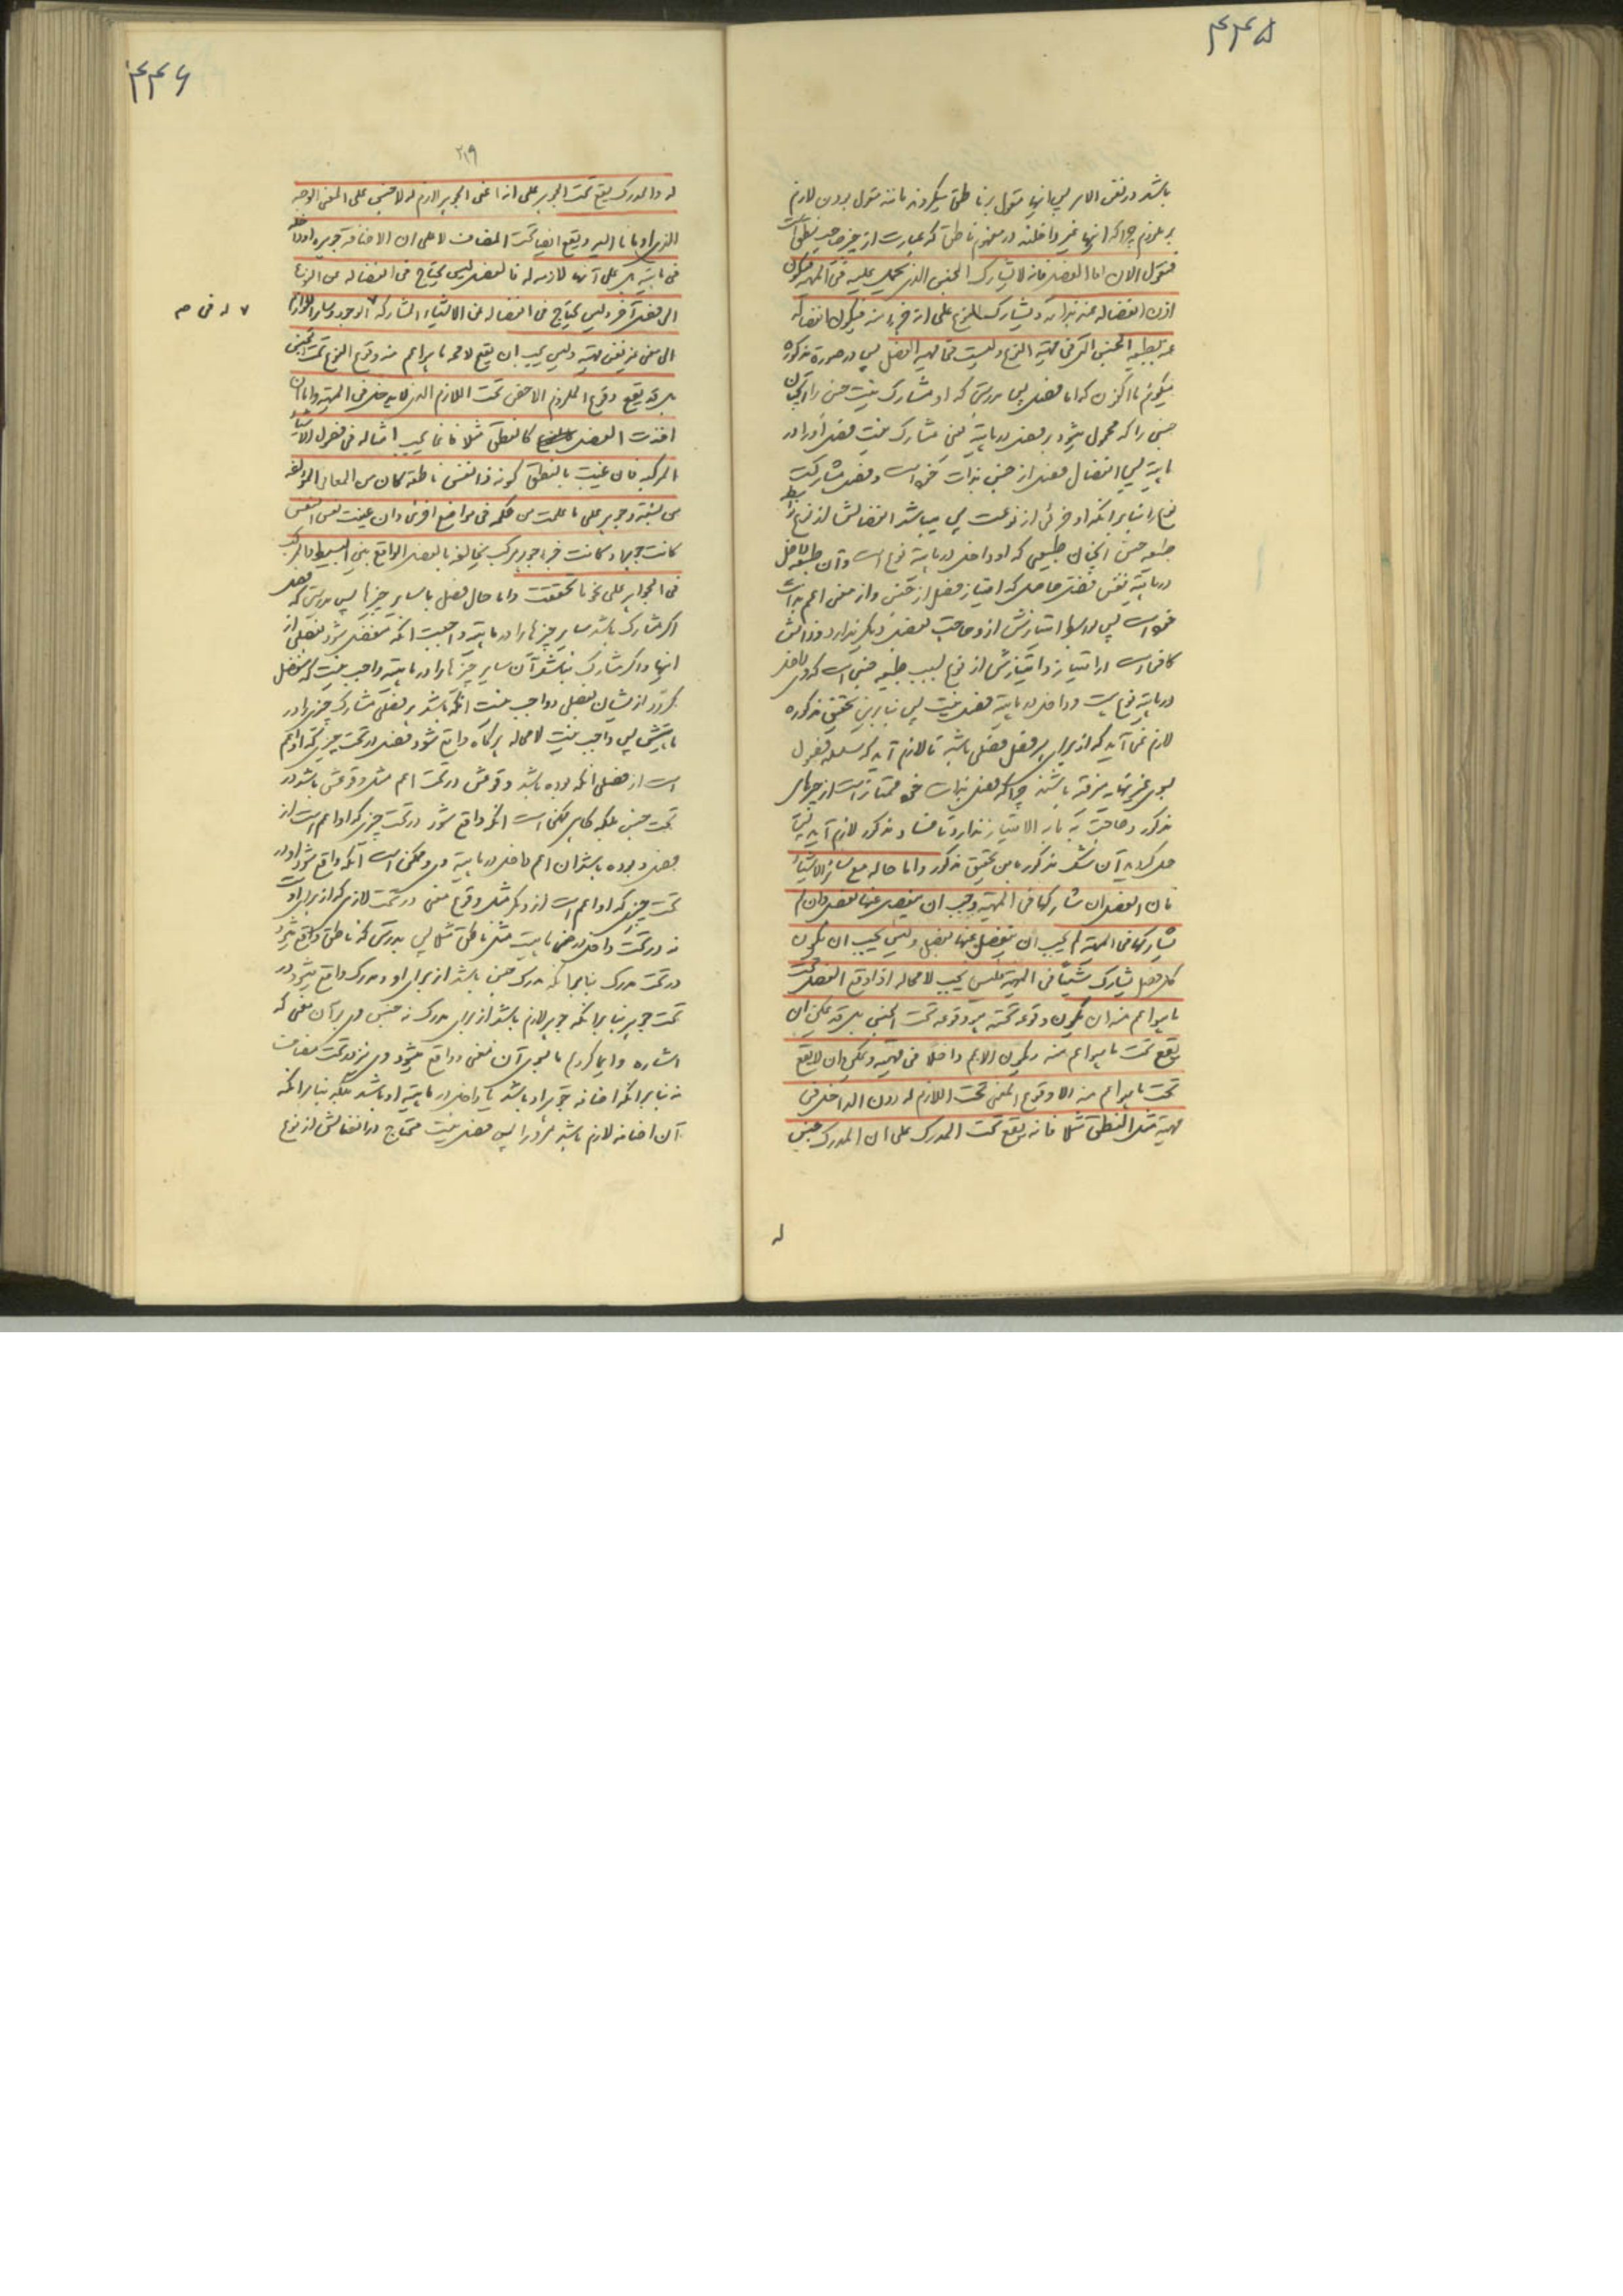 ۴۴۵
باشد در نفس الامر پس انها مقول بر ناطق میکردند مانند مقول بودن لازم
بر ملزوم چراکه انها غیر داخلند در مفهوم ناطق که عبارت از چیز صاحب نطق است
فنقول الان اما الفصل فانه لا یشارک الجنس الذی یحمل علیه فی المهیه فیکون
اذن انفصاله عنه بذاته و یشارک النوع علی انه جزء منه فیکون انفصاله
عنه بطبیعه الجنس التی فی مهیه النوع و لیست فی مهیه الفصل پس در صورة مذکوره
میکویم ما اکنون که اما فصل پس بدرستی که او مشارک نیست جنس را آنچنان
جنسی را که محمول میشود بر فصل در ماهیة یعنی مشارک نیست فصل او را در
ماهیة پس انفصال فصل از جنس بذات خود است و فصل مشارکست
نوع را بنابر انکه او جزئی از نوعست پس میباشد انفصالش از نوع بواسطه
طبیعه جنس آنچنان طبیعتی که او داخل در ماهیة نوع است و آن طبیعه داخل
در ماهیة نفس فصل حاصل که امتیاز فصل از جنس و از معنی اعم بذات
خود است پس در امتیازش از و حاجت بفصل دیکر ندارد و ذاتش
کافیست در امتیاز و امتیازش از نوع بسبب طبیعه جنس است که داخل
در ماهیة نوع است و داخل در ماهیة فصل نیست پس بنابرین تحقیق مذکوره
لازم نمی آید که از برای هر فصل فصلی باشد تا لازم آید که سلسله فصول
بسوی غیر نهایه مترقیه باشند چراکه فصل بذات خود ممتاز است از چیزهای
مذکور و حاجت به ما به الامتیاز ندارد تا فساد مذکور لازم آید پس
حل کردید آن شک مذکور باین تحقیق مذکور و اما حاله مع سائر الاشیاء
فان الفصل ان شارکها فی المهیة وجب ان ینفصل عنها بفصل و ان لم
یشارکها فی المهیة لم یجب ان ینفصل عنها بفصل و لیس یجب ان یکون
کل فصل یشارک شیئاً فی المهیة فلیس یجب لا محاله اذا وقع الفصل تحت
ما هو اعم منه ان یکون وقوعه تحته هو وقوعه تحت الجنس بل قد یمکن ان
یقع تحت ما هو اعم منه و یکون الاعم داخلا فی مهیته و یمکن ان لا یقع
تحت ما هو اعم منه الا وقوع المعنی تحت اللازم له دون الداخل فی
مهیته مثل النطق مثلا فانه یقع تحت المدرک علی ان المدرک جنس
له
۴۴۶
۲۱۹
له و المدرک یقع تحت الجوهر علی انه اعنی الجوهر لازم له لا جنس علی المعنی الوجه
الذی اومانا الیه و یقع ایضا تحت المضاف لا علی ان الاضافه جوهره او داخله
فی ماهیته بل علی انها لازمه له فالفصل لیس یحتاج فی انفصاله عن النوع
الی فصل آخر و لیس یحتاج فی انفصاله عن الاشیاء المشارکه ۷ الوجود و سایر اللوازم
۷ له فی م
الی معنی غیر نفس مهیته و لیس یجب ان یقع لا محه ما هو اعم منه وقوع النوع تحت الجنس
بل قد یقع وقوع الملزوم الاخص تحت اللازم الذی لا یدخل فی المهیه و اما ان
اخذت الفصل کالنطق مثلا فانما یجب امثاله فی فصول الاشیاء
المرکبه فان عنیت بالنطق کونه ذا نفس ناطقه کان من المعانی المؤلفه
من نسبة و جوهر علی ما علمت من حکمه فی مواضع اخری و ان عنیت نفس النفس
کانت جوهرا و کانت جزء جوهر مرکب یخالفه بالفصل الواقع بین البسیط و المرکب
فی الجواهر علی نحو ما تحققت و اما حال فصل با سایر چیزها پس بدرستی که فصل
اکر مشارک باشد سایر چیزها را در ماهیة واجبست انکه منفصل شود بفصلی از
انها و اکر مشارک نباشد آن سایر چیزها را در ماهیة واجب نیست که منفصل
کردد از ایشان بفصلی و واجب نیست انکه باشد هر فصلی مشارک چیزی را در
ماهیتش پس واجب نیست لا محاله هرکاه واقع شود فصل در تحت چیزی که او اعم
است از فصلی انکه بوده باشد وقوعش در تحت اعم مثل وقوعش باشد در
تحت جنس بلکه کاهی ممکن است انکه واقع شود در تحت چیزی که او اعم است از
فصل و بوده باشد ان اعم داخل در ماهیة وی و ممکن است انکه واقع شود او در
تحت چیزی که او اعم است از و مکر مثل وقوع معنی در تحت لازمی که از برای اوست
نه در تحت داخل در ماهیت مثل ناطق مثلا پس بدرستی که ناطق واقع میشود
در تحت مدرک بنابر انکه مدرک جنس باشد از برای او و مدرک واقع میشود در
تحت جوهر بنابر انکه جوهر لازم باشد از برای مدرک نه جنس وی بر آن معنی که
اشاره و ایما کردیم ما بسوی آن معنی و واقع میشود وی نیز در تحت مضاف
نه بنابر انکه اضافه جوهر او باشد یا داخل در ماهیة او باشد بلکه بنابر انکه
آن اضافه لازم باشد مر او را پس فصل نیست محتاج در انفصالش از نوع